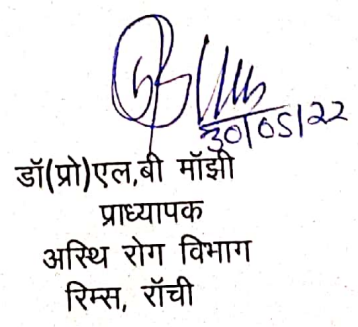 30/05/22
डॉ(प्रो)एल,बी माँझी
प्राध्यापक
अस्थि रोग विभाग
रिम्स, राँची